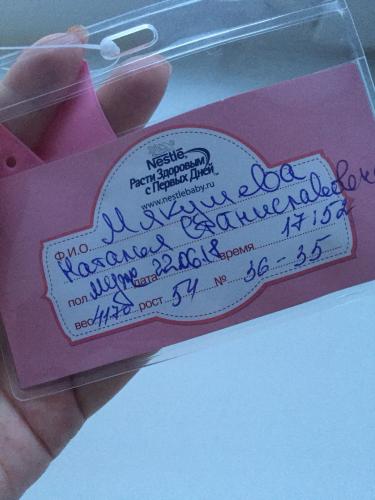 Nestlé
Расти Здоровым
с Первых Дней
www.nestlebaby.ru
Ф.И.О. Мякушева
Наталья Станиславовна
пол муж дата 22.06.18 время 17:52
вес 4170 рост 54 № 36-35